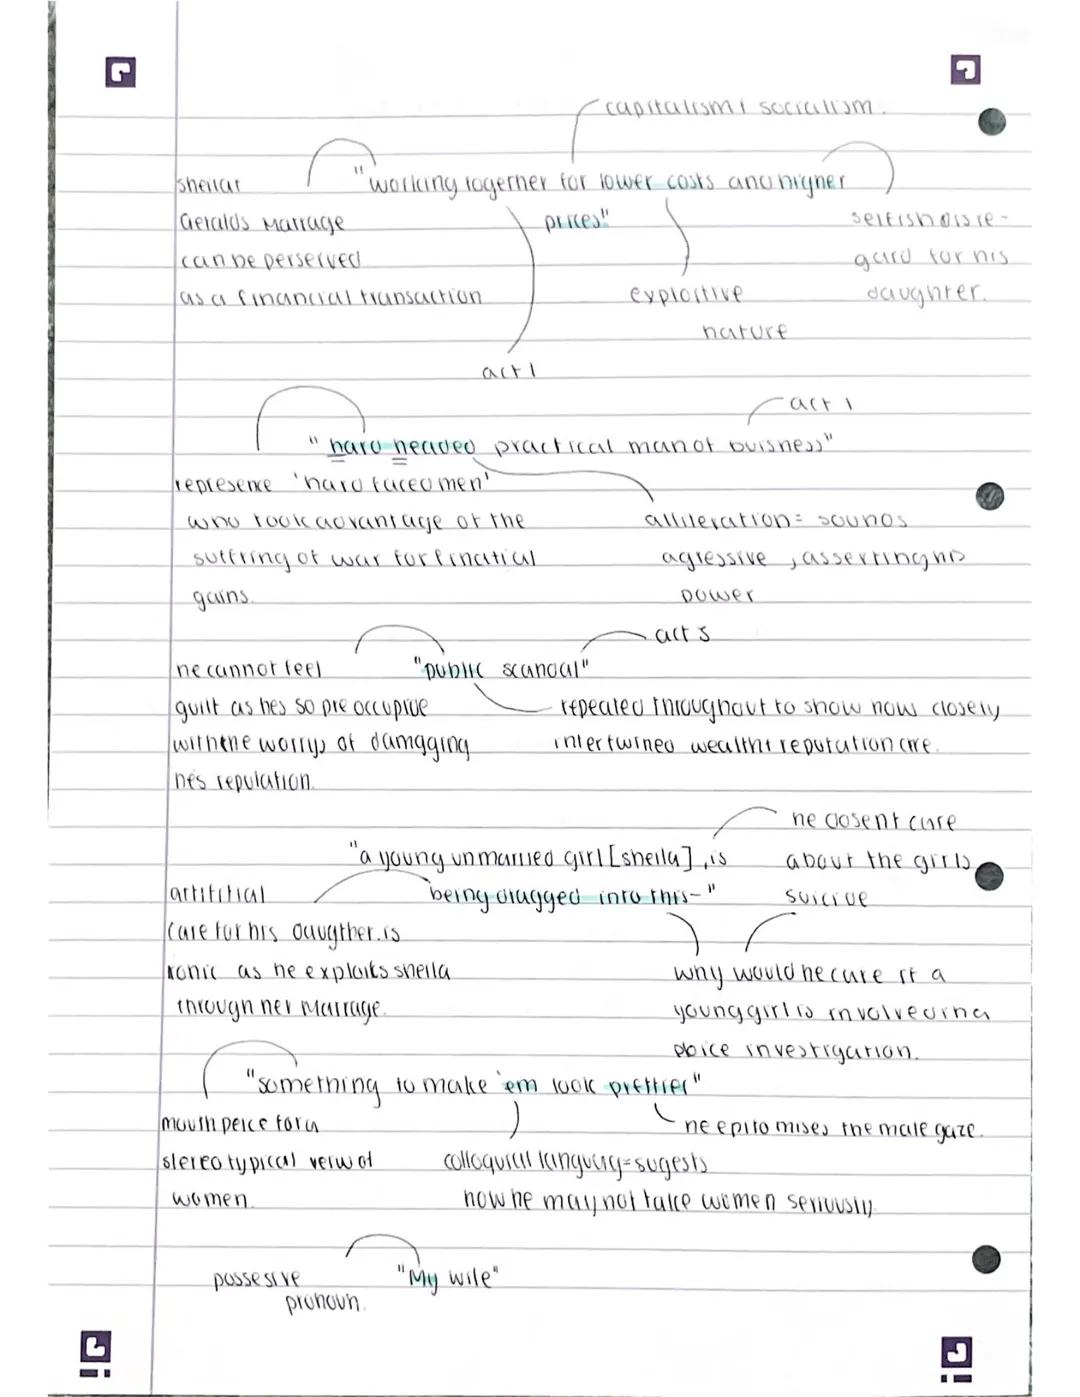 capitalism & socialism.
sheila &
"working together for lower costs and higher
Geralds Marrage
prices"
selfish disre-
can be perserved
gard for his
as a financial transaction
exploitive
daughter.
nature
act 1
act 1
"hard headed practical man of buisness"
represence 'hard faced men'
who took advantage of the
alliteration = sounds
suffring of war for finatial
agressive, asserting his
gains.
power
act 3
he cannot feel
"public scandal"
guilt as hes so pre occupide
repeated throughout to show how closely
with the worrys of damgging
intertwined wealth & reputation are.
he's reputation.
he dosent care
"a young unmarried girl [sheila], is
about the girls
artifitial
being dragged into this-"
suicide
care for his daugther. is
ironic as he exploits sheila
why would he care if a
through her Marrage.
young girl is involved in a
police investigation.
"something to make 'em look prettier"
mouth peice for a
he epitomises the male gaze.
stereotypical veiw of
colloquial languag = sugests
women.
how he may not take women seriously.
possesive
"My wife"
pronoun.